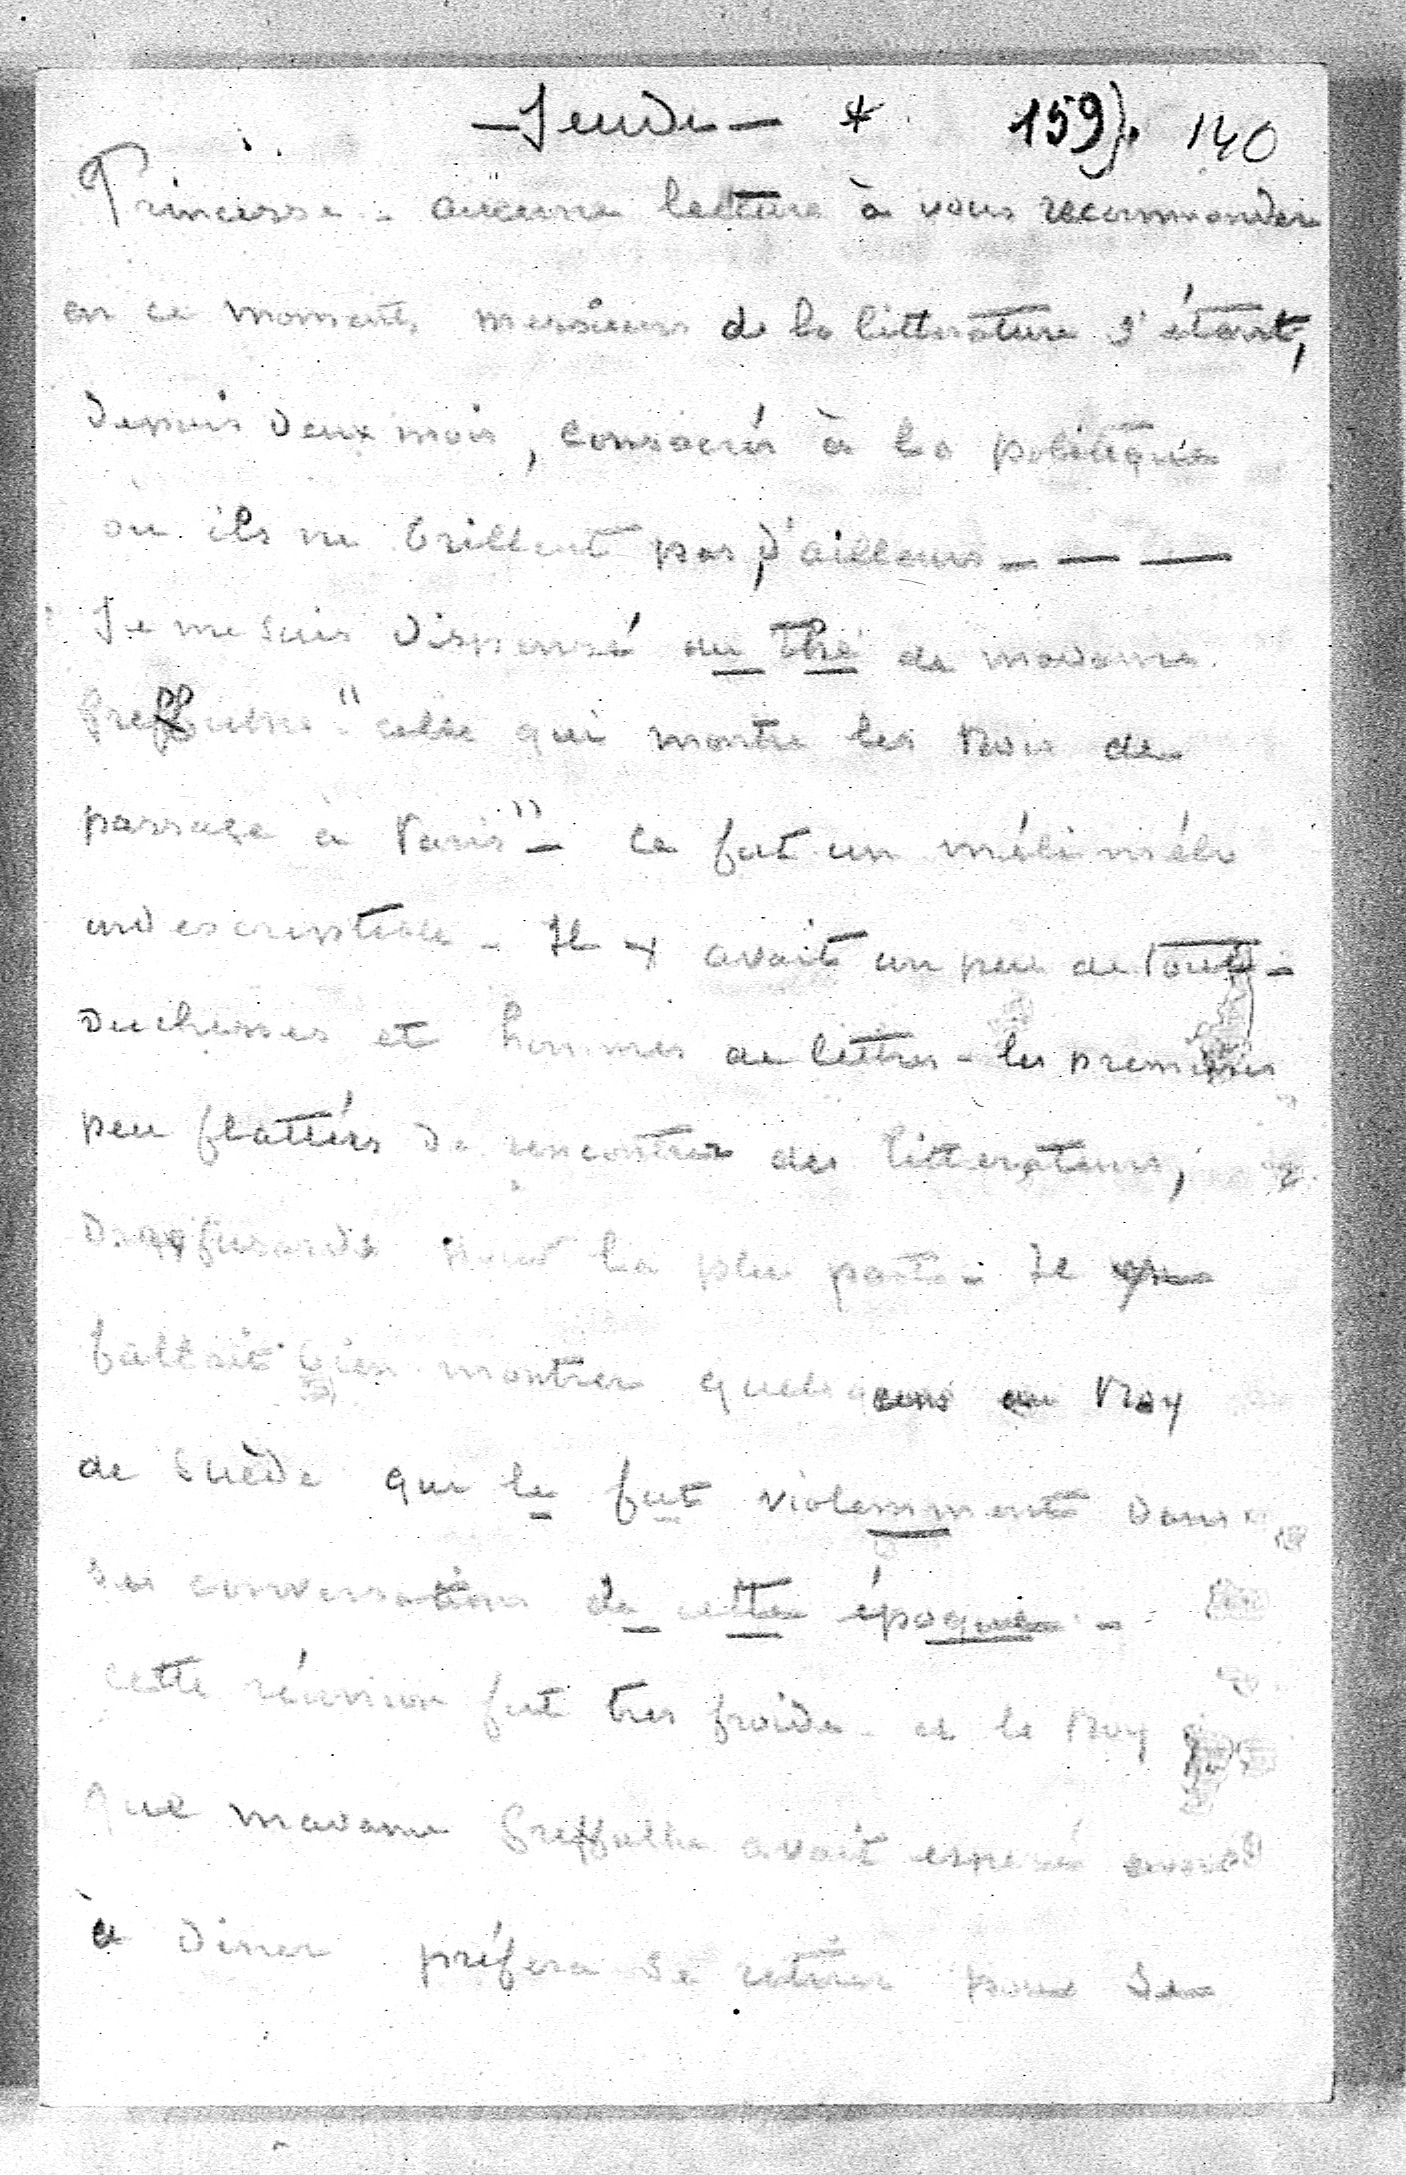 — Jeudi — * 159}. 140
Princesse - aucune lecture à vous recommander
en ce moment, messieurs de la litterature s'étant,
depuis deux mois, consacrés à la politique
où ils ne brillent pas, d'ailleurs - — —
Je me suis dispensé du thé de madame
Greffulhe "celle qui montre les Rois de
passage à Paris" - Ce fut un méli mélo
indescriptible - Il y avait un peu de tout -
duchesses et hommes de lettres - les premières
peu flattées de rencontrer des litterateurs,
pour la plus part - Il
fallait bien montrer quelques uns au Roy
de Suède qui le fut violemment dans
sa conversation de cette époque -
cette réunion fut tres froide - et le Roy
que madame Greffulhe avait esperé avoir
à diner préfera se retirer pour se